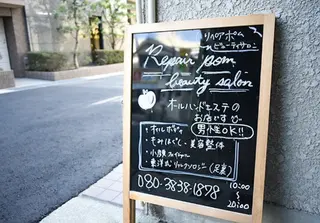 リペア ポム
ビューティサロン
Repair pom
beauty salon
オールハンドエステの
お店です
男性OK!!
・オールボディ
・もみほぐし・美容整体
・小顔フェイシャル
・東洋式リフレクソロジー(足裏)
080-3838-1878
10:00
20:00